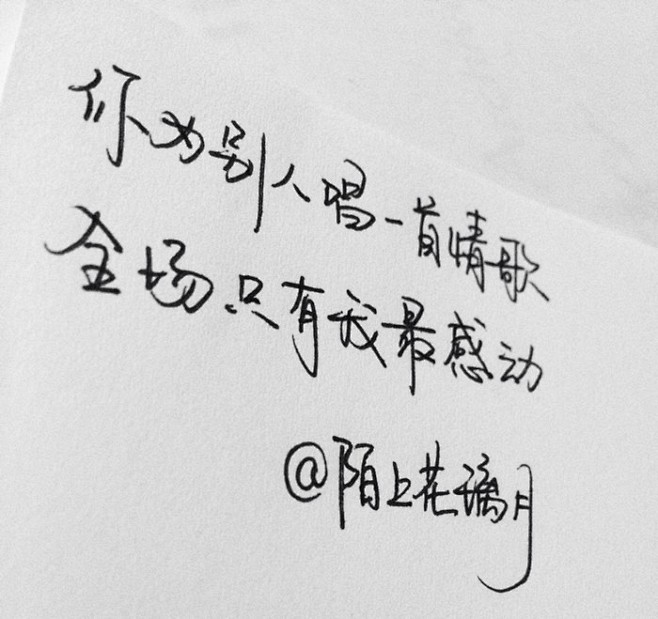 你为别人唱一首情歌
全场只有我最感动
@陌上花璃月